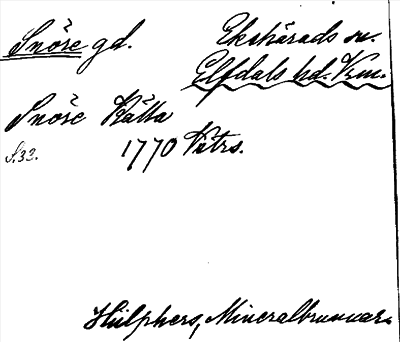 Snöre gd.
Ekshärads sn.
Elfdals hd. Vrm.
Snöre Källa
S.33.
1770 Vstrs.
Hülphers, Mineralbrunnar.